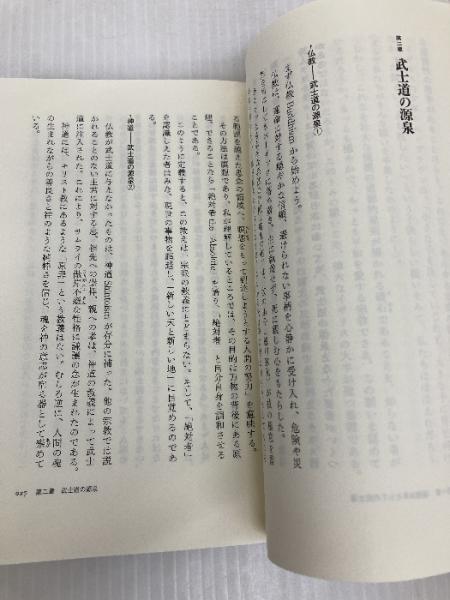 第二章
武士道の源泉
◆仏教——武士道の源泉①
まず仏教 Buddhism から始めよう。
仏教は、運命に対する穏やかな信頼、避けられない事柄を心静かに受け入れ、危険や災
る範囲を超えた思念の領域へ、瞑想をもって到達しようとする人間の努力」を意味する。
その方法は瞑想であり、私が理解しているところでは、その目的は万物の背後にある原
理、できることなら「絶対者 the Absolute」を悟り、「絶対者」と自分自身を調和させる
ことである。
このように定義すると、この教えは一宗派の教義にとどまらない。そして、「絶対者」
を認識した者はみな、現世の事物を超越し、「新しい天と新しい地」に目覚めるのであ
る。
◆神道——武士道の源泉②
仏教が武士道に与えなかったものは、神道 Shintoism が存分に補った。他の宗教では説
かれることのない主君に対する忠、祖先への崇拝、親への孝は、神道の教義によって武士
道に注入された。これにより、サムライの傲岸不遜な性格に謙譲の念が生まれたのである。
神道には、キリスト教にあるような「原罪」という教義はない。むしろ逆に、人間の魂
の生まれながらの善良さと神のような純粋さを信じ、魂を神の意志が宿る器として崇めて
いる。
027 第二章 武士道の源泉